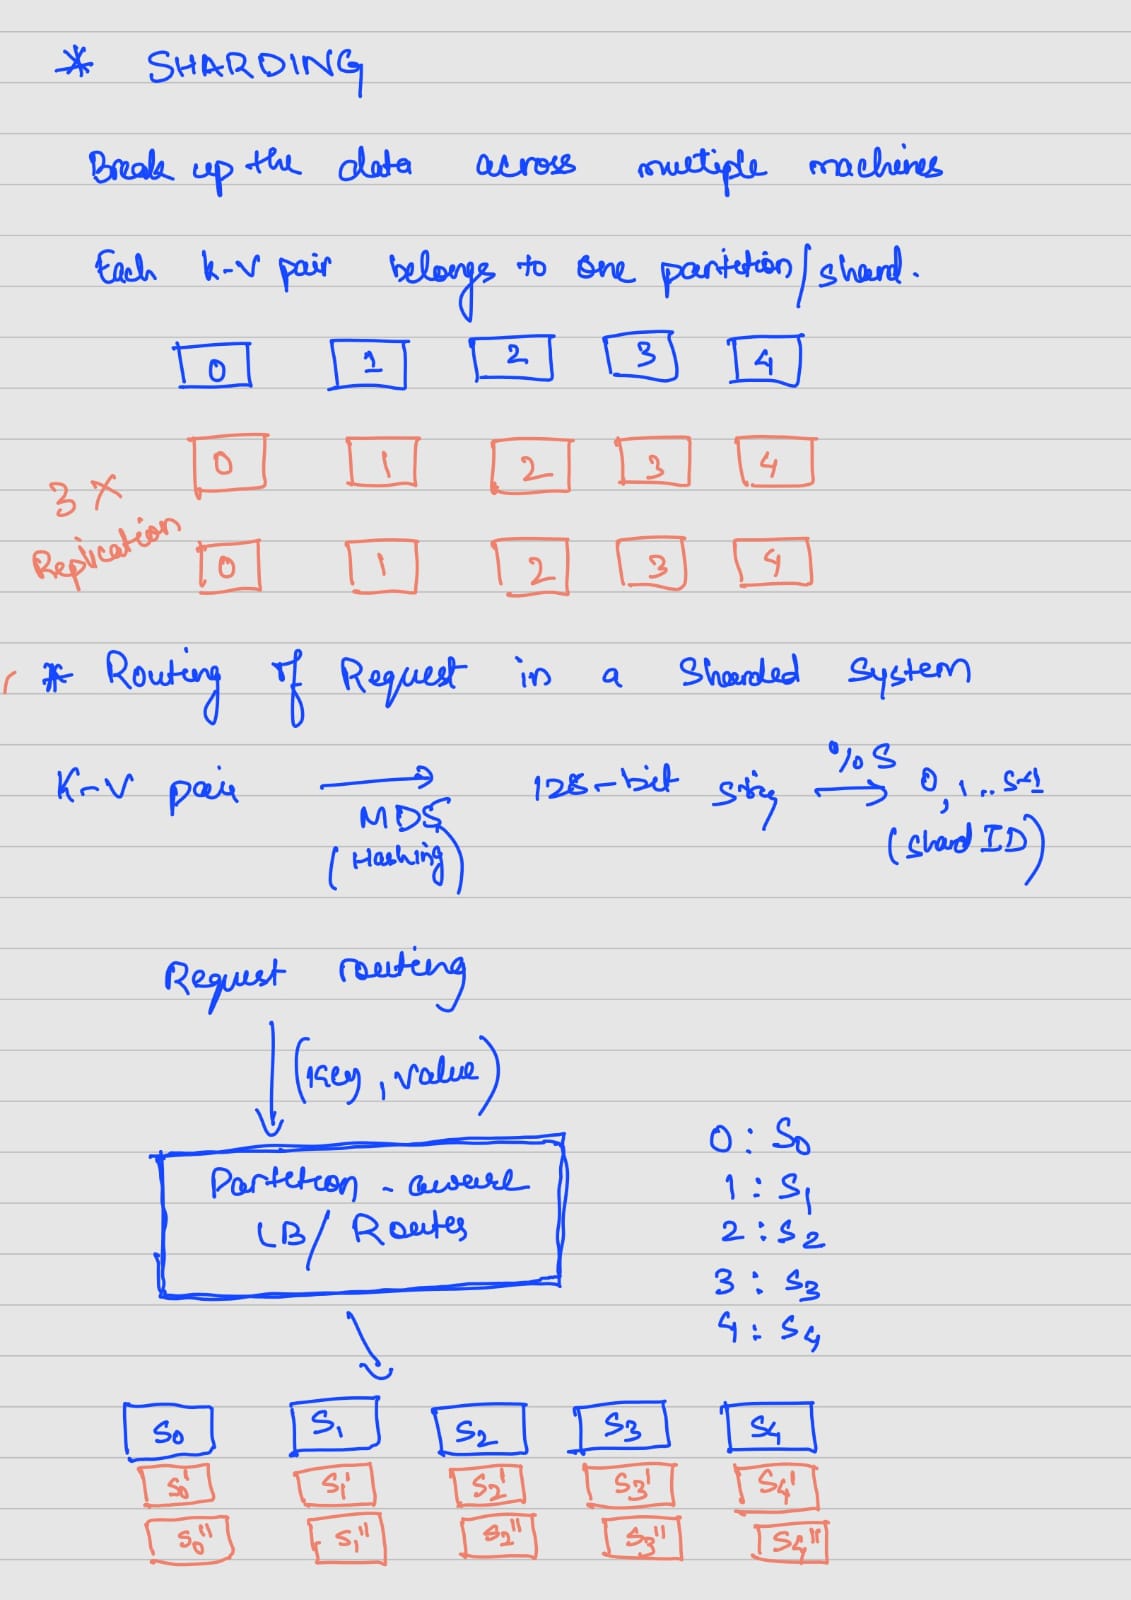 * SHARDING
Break up the data across multiple machines
Each k-v pair belongs to one partition/shard.
0 1 2 3 4
0 1 2 3 4
3X
Replication
0 1 2 3 4
* Routing of Request in a Sharded System
K-V pair → 128-bit string %S → 0, 1 .. S-1
MD5
(Hashing)
(Shard ID)
Request routing
(key, value)
Partition-aware
LB/Router
0: S0
1: S1
2: S2
3: S3
4: S4
S0 S1 S2 S3 S4
S0' S1' S2' S3' S4'
S0'' S1'' S2'' S3'' S4''